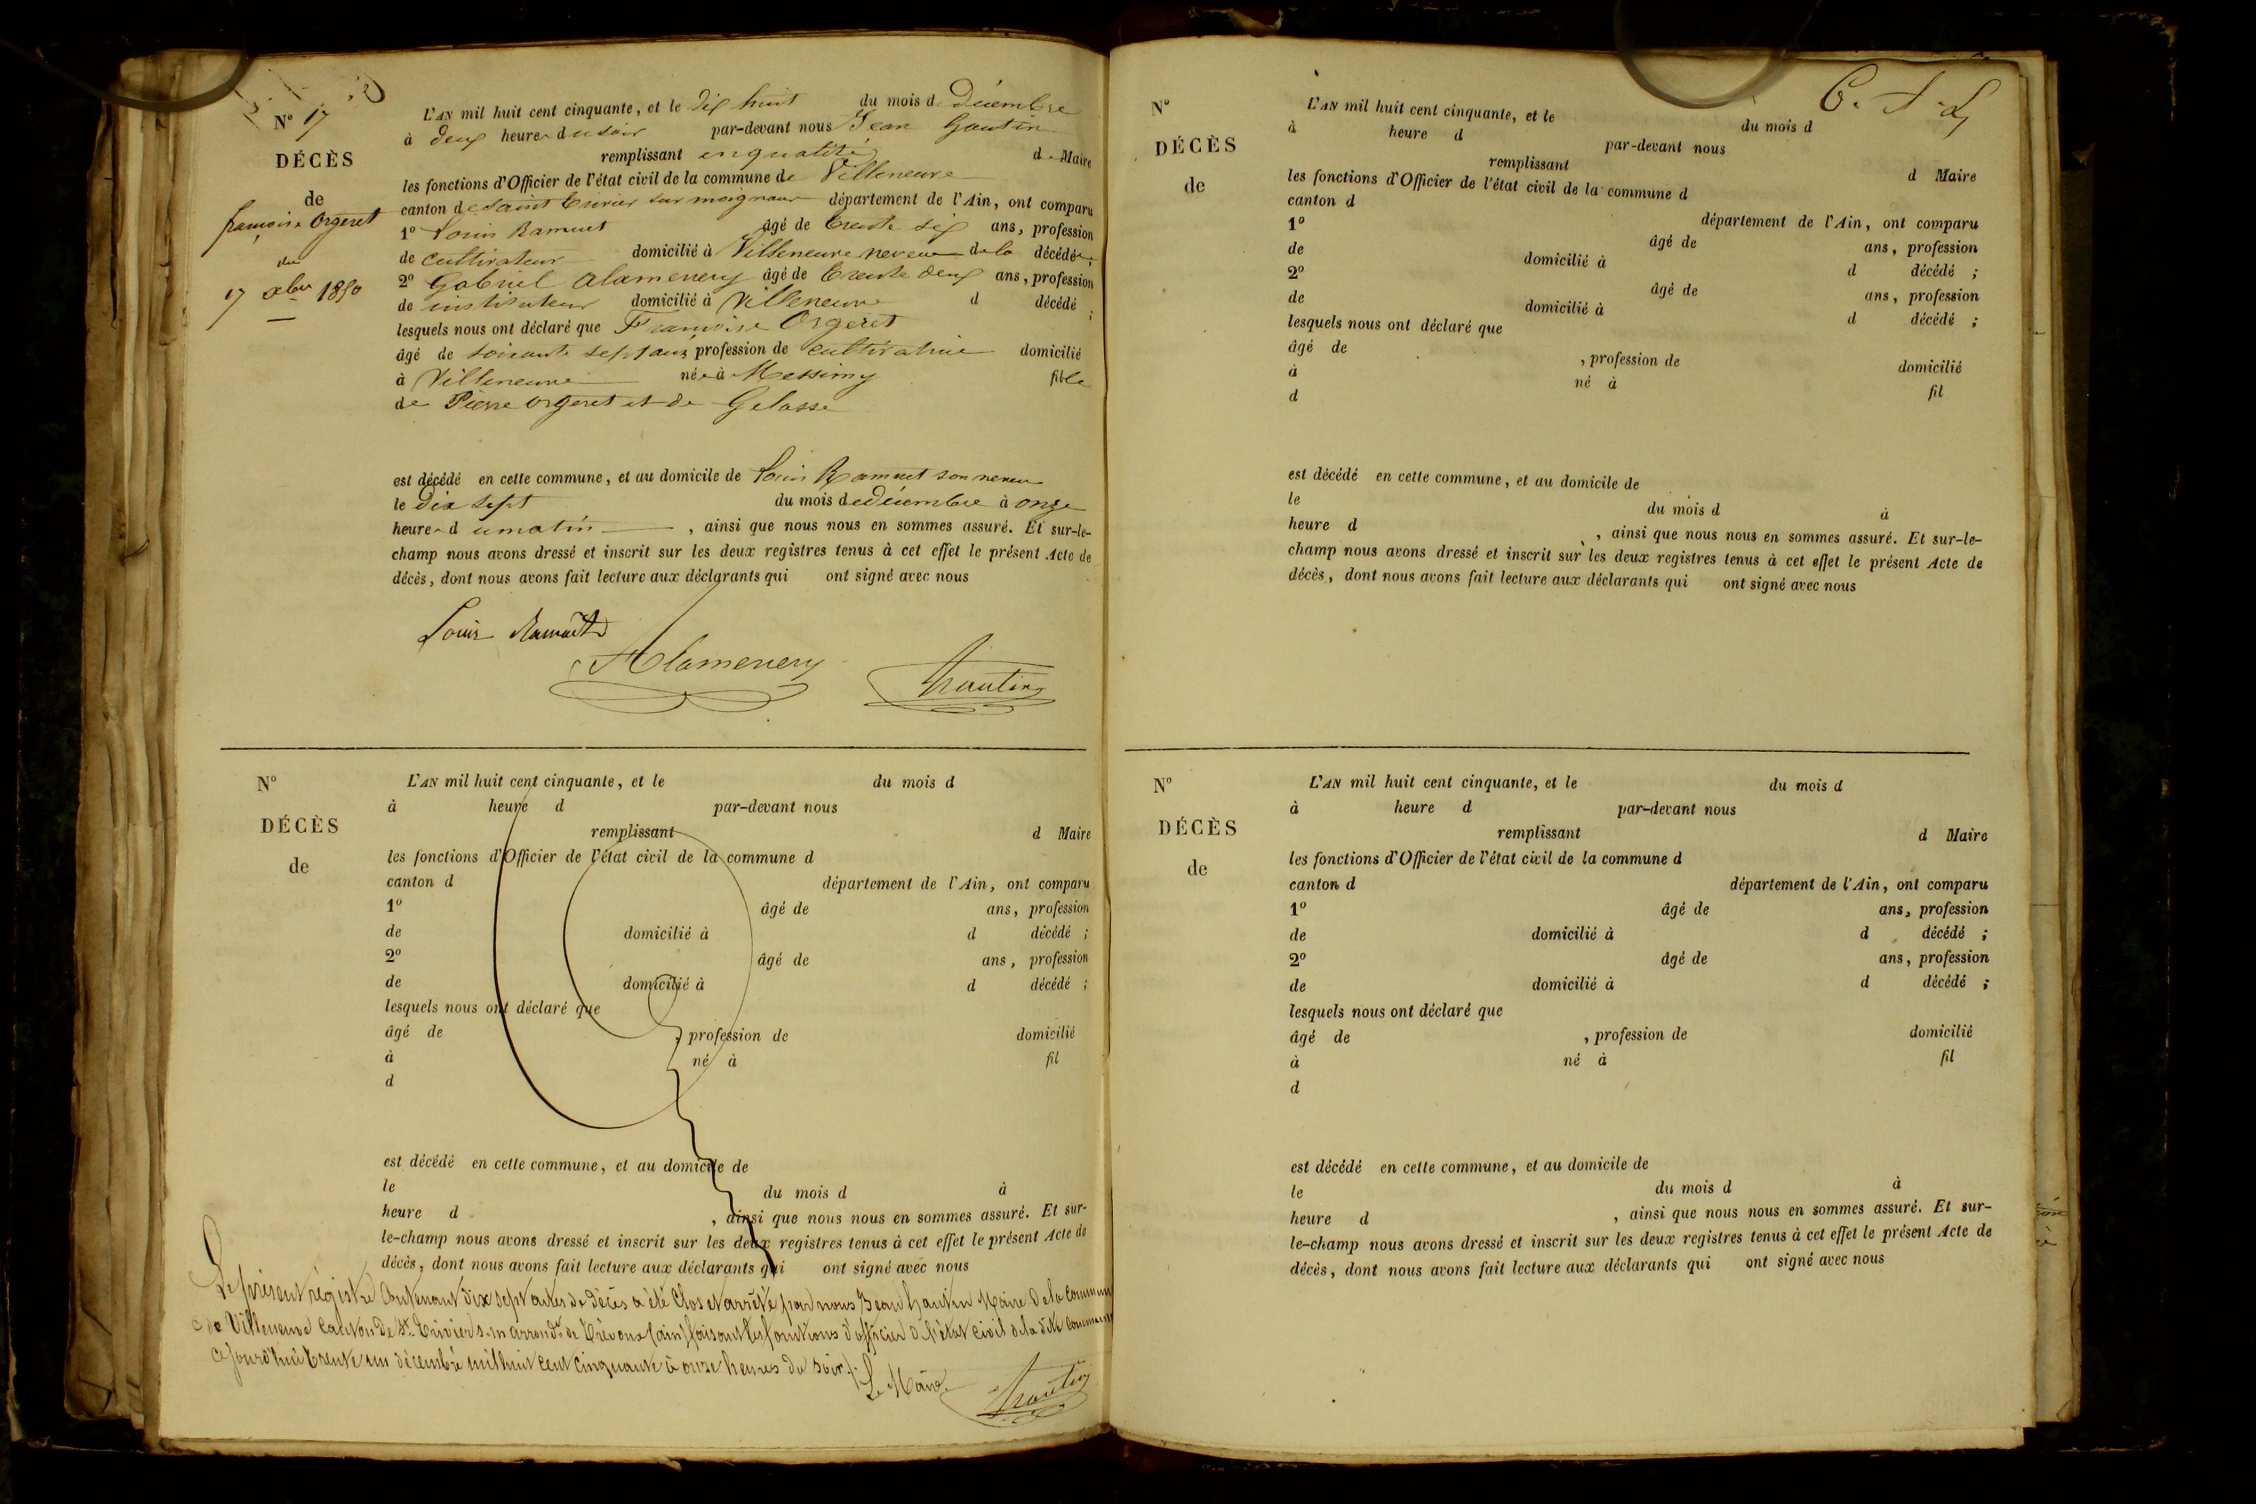 N° 17
DÉCÈS
de
françoise Orgeret
du
17 xbre 1850
L'AN mil huit cent cinquante, et le dix huit du mois de Décembre
à deux heures du soir par-devant nous Jean Gautin
remplissant en qualité de Maire
les fonctions d'Officier de l'état civil de la commune de Villeneuve
canton de saint Trivier sur moignans département de l'Ain, ont comparu
1° Louis Ramuet âgé de trente six ans, profession
de cultivateur domicilié à Villeneuve neveu de la décédée;
2° Gabriel Alamenery âgé de trente deux ans, profession
de instituteur domicilié à Villeneuve d décédé ;
lesquels nous ont déclaré que Françoise Orgeret
âgé de soixante sept ans, profession de cultivatrice domicilié
à Villeneuve née à Messimy fille
de Pierre Orgeret et de Gelasse
est décédé en cette commune, et au domicile de Louis Ramuet son neveu
le Dix sept du mois de Décembre à onze
heures du matin , ainsi que nous nous en sommes assuré. Et sur-le-
champ nous avons dressé et inscrit sur les deux registres tenus à cet effet le présent Acte de
décès, dont nous avons fait lecture aux déclarants qui ont signé avec nous
Louis Ramuet
Alamenery
N°
DÉCÈS
de
L'AN mil huit cent cinquante, et le du mois d
à heure d par-devant nous
remplissant d Maire
les fonctions d'Officier de l'état civil de la commune d
canton d département de l'Ain, ont comparu
1° âgé de ans, profession
de domicilié à d décédé ;
2° âgé de ans, profession
de domicilié à d décédé ;
lesquels nous ont déclaré que
âgé de , profession de domicilié
à né à fil
d
est décédé en cette commune, et au domicile de
le du mois d à
heure d , ainsi que nous nous en sommes assuré. Et sur-
le-champ nous avons dressé et inscrit sur les deux registres tenus à cet effet le présent Acte de
décès, dont nous avons fait lecture aux déclarants qui ont signé avec nous
Le présent registre Contenant dix sept actes de décès a été Clos et arrêté par nous Jean Gautin Maire de la commune
de Villeneuve Canton de St. Trivier s. m arrondt. de Trévoux (ain) faisant les fonctions d'officier de l'état civil de la dite commune
ce jourd'hui trente un décembre mil huit cent cinquante à onze heures du soir
Le Maire
N°
DÉCÈS
de
L'AN mil huit cent cinquante, et le du mois d
à heure d par-devant nous
remplissant d Maire
les fonctions d'Officier de l'état civil de la commune d
canton d département de l'Ain, ont comparu
1° âgé de ans, profession
de domicilié à d décédé ;
2° âgé de ans, profession
de domicilié à d décédé ;
lesquels nous ont déclaré que
âgé de , profession de domicilié
à né à fil
d
est décédé en cette commune, et au domicile de
le du mois d à
heure d , ainsi que nous nous en sommes assuré. Et sur-le-
champ nous avons dressé et inscrit sur les deux registres tenus à cet effet le présent Acte de
décès, dont nous avons fait lecture aux déclarants qui ont signé avec nous
N°
DÉCÈS
de
L'AN mil huit cent cinquante, et le du mois d
à heure d par-devant nous
remplissant d Maire
les fonctions d'Officier de l'état civil de la commune d
canton d département de l'Ain, ont comparu
1° âgé de ans, profession
de domicilié à d décédé ;
2° âgé de ans, profession
de domicilié à d décédé ;
lesquels nous ont déclaré que
âgé de , profession de domicilié
à né à fil
d
est décédé en cette commune, et au domicile de
le du mois d à
heure d , ainsi que nous nous en sommes assuré. Et sur-
le-champ nous avons dressé et inscrit sur les deux registres tenus à cet effet le présent Acte de
décès, dont nous avons fait lecture aux déclarants qui ont signé avec nous